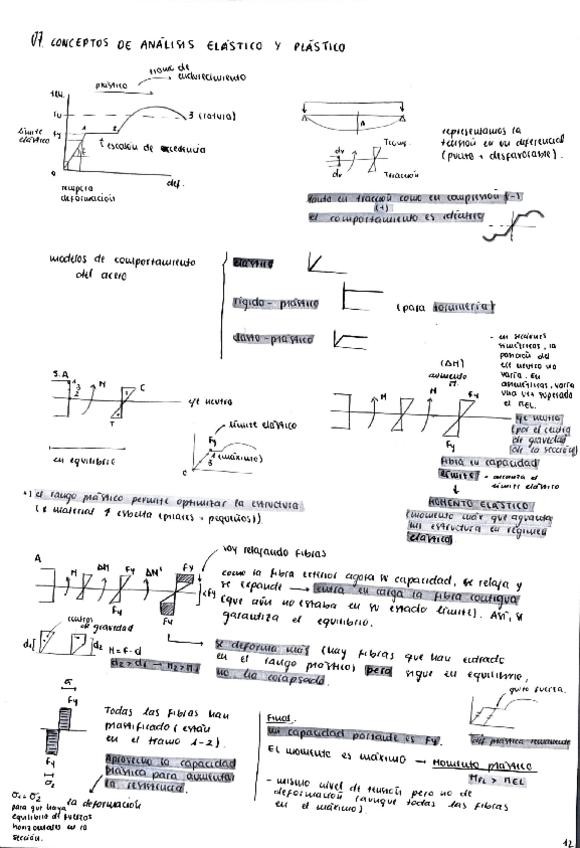 07. CONCEPTOS DE ANÁLISIS ELÁSTICO Y PLÁSTICO
plástico
zona de endurecimiento
límite elástico
fu
fy
1
2
3 (rotura)
escalón de cedencia
recupera deformación
def.
representamos la
tensión en un diferencial
(punto + desfavorable).
dv
dv
Tracción
tanto en tracción como en compresión (-)
(+)
el comportamiento es idéntico
modelos de comportamiento
del acero
elástico
rígido - plástico
(para
elasto - plástico
- en secciones
simétricas, la
posición del
eje neutro no
varía. En
asimétricas, varía
una vez superado
el MEL.
S.A
1
3
2
M
C
T
eje neutro
en equilibrio
límite elástico
Fy
(máximo)
(ΔM)
aumento
M
M
Fy
Fy
eje neutro
(por el centro
de gravedad
de la sección)
fibra en capacidad
límite - alcanza el
límite elástico
MOMENTO ELÁSTICO
(momento máx que aguanta
mi estructura en régimen
elástico)
el rango plástico permite optimizar la estructura
(- material, + esbelta (pilares + pequeños)).
A
M
ΔM
Fy
ΔM'
Fy
Fy
Fy
<Fy
voy relajando fibras
como la fibra exterior agota su capacidad, se relaja y
se expande → entra en carga la fibra contigua
(que aún no estaba en su estado límite). Así, se
garantiza el equilibrio.
centros
de gravedad
d1
d2
M = F · d
d2 > d1 → M2 > M1
se deforma más (hay fibras que han entrado
en el rango plástico) pero sigue en equilibrio,
no ha colapsado.
σ
Fy
Fy
σ2
Todas las fibras han
plastificado (están
en el tramo 1-2).
Aprovecho la capacidad
plástica para aumentar
la resistencia.
la deformación
σ1 = σ2
para que haya
equilibrio de fuerzas
horizontales en la
sección.
Final.
Mi capacidad portante es Fy.
El momento es máximo → Momento plástico
MPL > MEL
- mismo nivel de tensión pero no de
deformación (aunque todas las fibras
en el máximo).
def plástica remanente
12